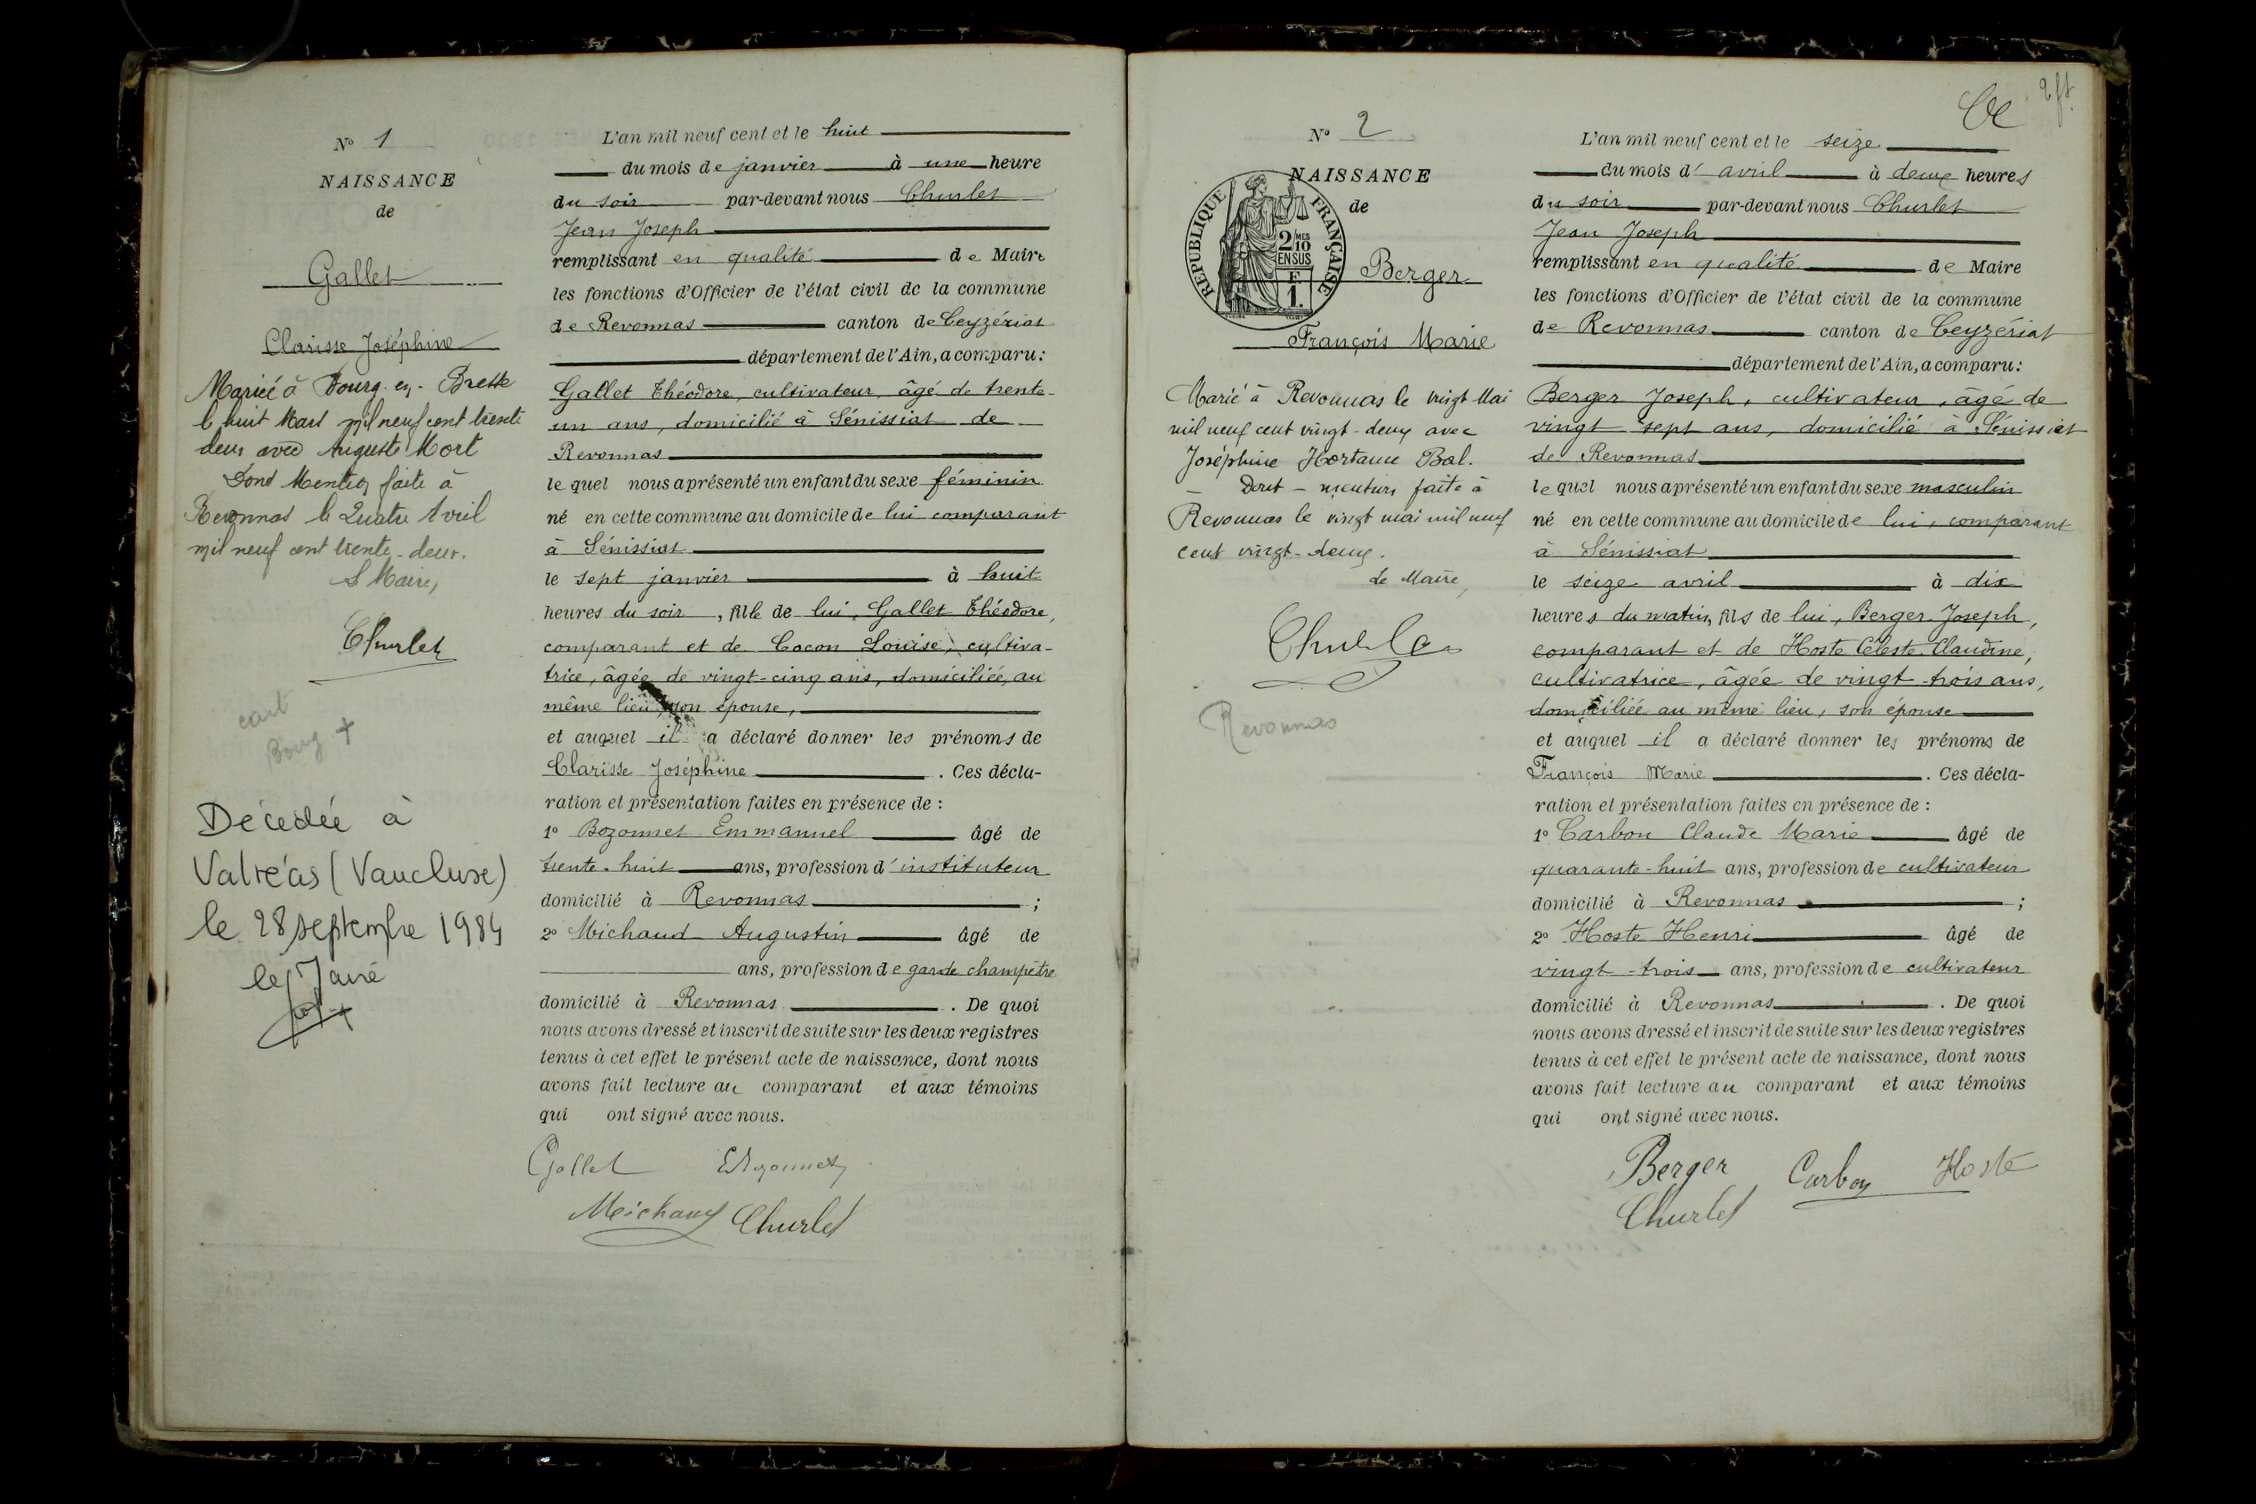 N° 1
NAISSANCE
de
Gallet
Clarisse Joséphine
Mariée à Bourg-en-Bresse
le huit Mars mil neuf cent trente
deux avec Auguste Mort
Dont Mention faite à
Revonnas le Quatre Avril
mil neuf cent trente-deux.
Le Maire,
Churlet
Bourg +
Décédée à
Valréas (Vaucluse)
le 28 septembre 1984
le Maire
L'an mil neuf cent et le huit
du mois de janvier à une heure
du soir par-devant nous Churlet
Jean Joseph
remplissant en qualité de Maire
les fonctions d'Officier de l'état civil de la commune
de Revonnas canton de Ceyzériat
département de l'Ain, a comparu:
Gallet Théodore, cultivateur, âgé de trente-
un ans, domicilié à Sénissiat de
Revonnas
le quel nous a présenté un enfant du sexe féminin
né en cette commune au domicile de lui comparant
à Sénissiat
le sept janvier à huit
heures du soir, fille de lui, Gallet Théodore,
comparant et de Cocon Louise, cultiva-
trice, âgée de vingt-cinq ans, domiciliée, au
même lieu, son épouse,
et auquel il a déclaré donner les prénoms de
Clarisse Joséphine. Ces décla-
ration et présentation faites en présence de :
1° Bozonnet Emmanuel âgé de
trente-huit ans, profession d'instituteur
domicilié à Revonnas ;
2° Michaud Augustin âgé de
ans, profession de garde champêtre
domicilié à Revonnas. De quoi
nous avons dressé et inscrit de suite sur les deux registres
tenus à cet effet le présent acte de naissance, dont nous
avons fait lecture au comparant et aux témoins
qui ont signé avec nous.
Gallet EBozonnet
Michaud Churlet
2 ft.
N° 2
NAISSANCE
de
RÉPUBLIQUE FRANÇAISE
2/10 MES
EN SUS
F
1.
Berger
François Marie
Marié à Revonnas le vingt Mai
mil neuf cent vingt-deux avec
Joséphine Hortance Bal.
Dont - mention faite à
Revonnas le vingt mai mil neuf
cent vingt-deux.
Le Maire,
Churlet
Revonnas
L'an mil neuf cent et le seize
du mois d'avril à deux heures
du soir par-devant nous Churlet
Jean Joseph
remplissant en qualité de Maire
les fonctions d'Officier de l'état civil de la commune
de Revonnas canton de Ceyzériat
département de l'Ain, a comparu:
Berger Joseph, cultivateur, âgé de
vingt sept ans, domicilié à Sénissiat
de Revonnas
le quel nous a présenté un enfant du sexe masculin
né en cette commune au domicile de lui, comparant
à Sénissiat
le seize avril à dix
heures du matin, fils de lui, Berger Joseph,
comparant et de Hoste Céleste Claudine,
cultivatrice, âgée de vingt-trois ans,
domiciliée au même lieu, son épouse
et auquel il a déclaré donner les prénoms de
François Marie. Ces décla-
ration et présentation faites en présence de :
1° Carbon Claude Marie âgé de
quarante-huit ans, profession de cultivateur
domicilié à Revonnas ;
2° Hoste Henri âgé de
vingt-trois ans, profession de cultivateur
domicilié à Revonnas. De quoi
nous avons dressé et inscrit de suite sur les deux registres
tenus à cet effet le présent acte de naissance, dont nous
avons fait lecture au comparant et aux témoins
qui ont signé avec nous.
Berger Carbon Hoste
Churlet